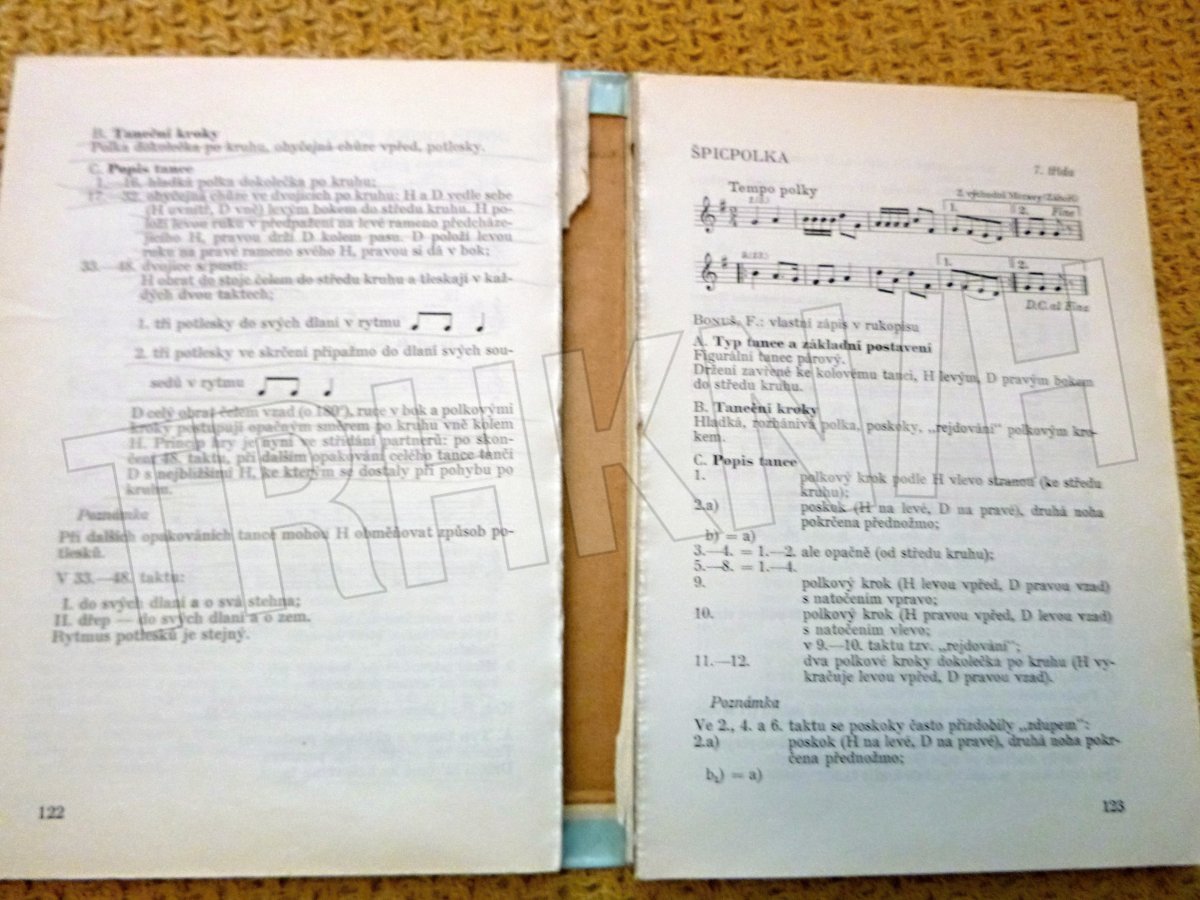 B. Taneční kroky
Polka dokolečka po kruhu, obyčejná chůze vpřed, potlesky.
C. Popis tance
1.—16. hladká polka dokolečka po kruhu;
17.—32. obyčejná chůze ve dvojicích po kruhu: H a D vedle sebe
(H uvnitř, D vně) levým bokem do středu kruhu. H po-
loží levou ruku v předpažení na levé rameno předcháze-
jícího H, pravou drží D kolem pasu. D položí levou
ruku na pravé rameno svého H, pravou si dá v bok;
33.—48. dvojice se pustí:
H obrat do stoje čelem do středu kruhu a tleskají v kaž-
dých dvou taktech;
1. tři potlesky do svých dlaní v rytmu
2. tři potlesky ve skrčení připažmo do dlaní svých sou-
sedů v rytmu
D celý obrat čelem vzad (o 180°), ruce v bok a polkovými
kroky postupují opačným směrem po kruhu vně kolem
H. Princip hry je nyní ve střídání partnerů: po skon-
čení 48. taktu, při dalším opakování celého tance tančí
D s nejbližšími H, ke kterým se dostaly při pohybu po
kruhu.
Poznámka
Při dalších opakováních tance mohou H obměňovat způsob po-
tlesků.
V 33.—48. taktu:
I. do svých dlaní a o svá stehna;
II. dřep — do svých dlaní a o zem.
Rytmus potlesků je stejný.
122
ŠPICPOLKA
7. třída
Tempo polky
Z východní Moravy
1.
2.
Fine
1.
2.
D.C. al Fine
BONUŠ, F.: vlastní zápis v rukopisu
A. Typ tance a základní postavení
Figurální tanec párový.
Držení zavřené ke kolovému tanci, H levým, D pravým bokem
do středu kruhu.
B. Taneční kroky
Hladká, rozhánivá polka, poskoky, „rejdování" polkovým kro-
kem.
C. Popis tance
1. polkový krok podle H vlevo stranou (ke středu
kruhu);
2.a) poskok (H na levé, D na pravé), druhá noha
pokrčena přednožmo;
b) = a)
3.—4. = 1.—2. ale opačně (od středu kruhu);
5.—8. = 1.—4.
9. polkový krok (H levou vpřed, D pravou vzad)
s natočením vpravo;
10. polkový krok (H pravou vpřed, D levou vzad)
s natočením vlevo;
v 9.—10. taktu tzv. „rejdování";
11.—12. dva polkové kroky dokolečka po kruhu (H vy-
kračuje levou vpřed, D pravou vzad).
Poznámka
Ve 2., 4. a 6. taktu se poskoky často přizdobily „zdupem":
2.a) poskok (H na levé, D na pravé), druhá noha pokr-
čena přednožmo;
b₁) = a)
123
TRHKNIH